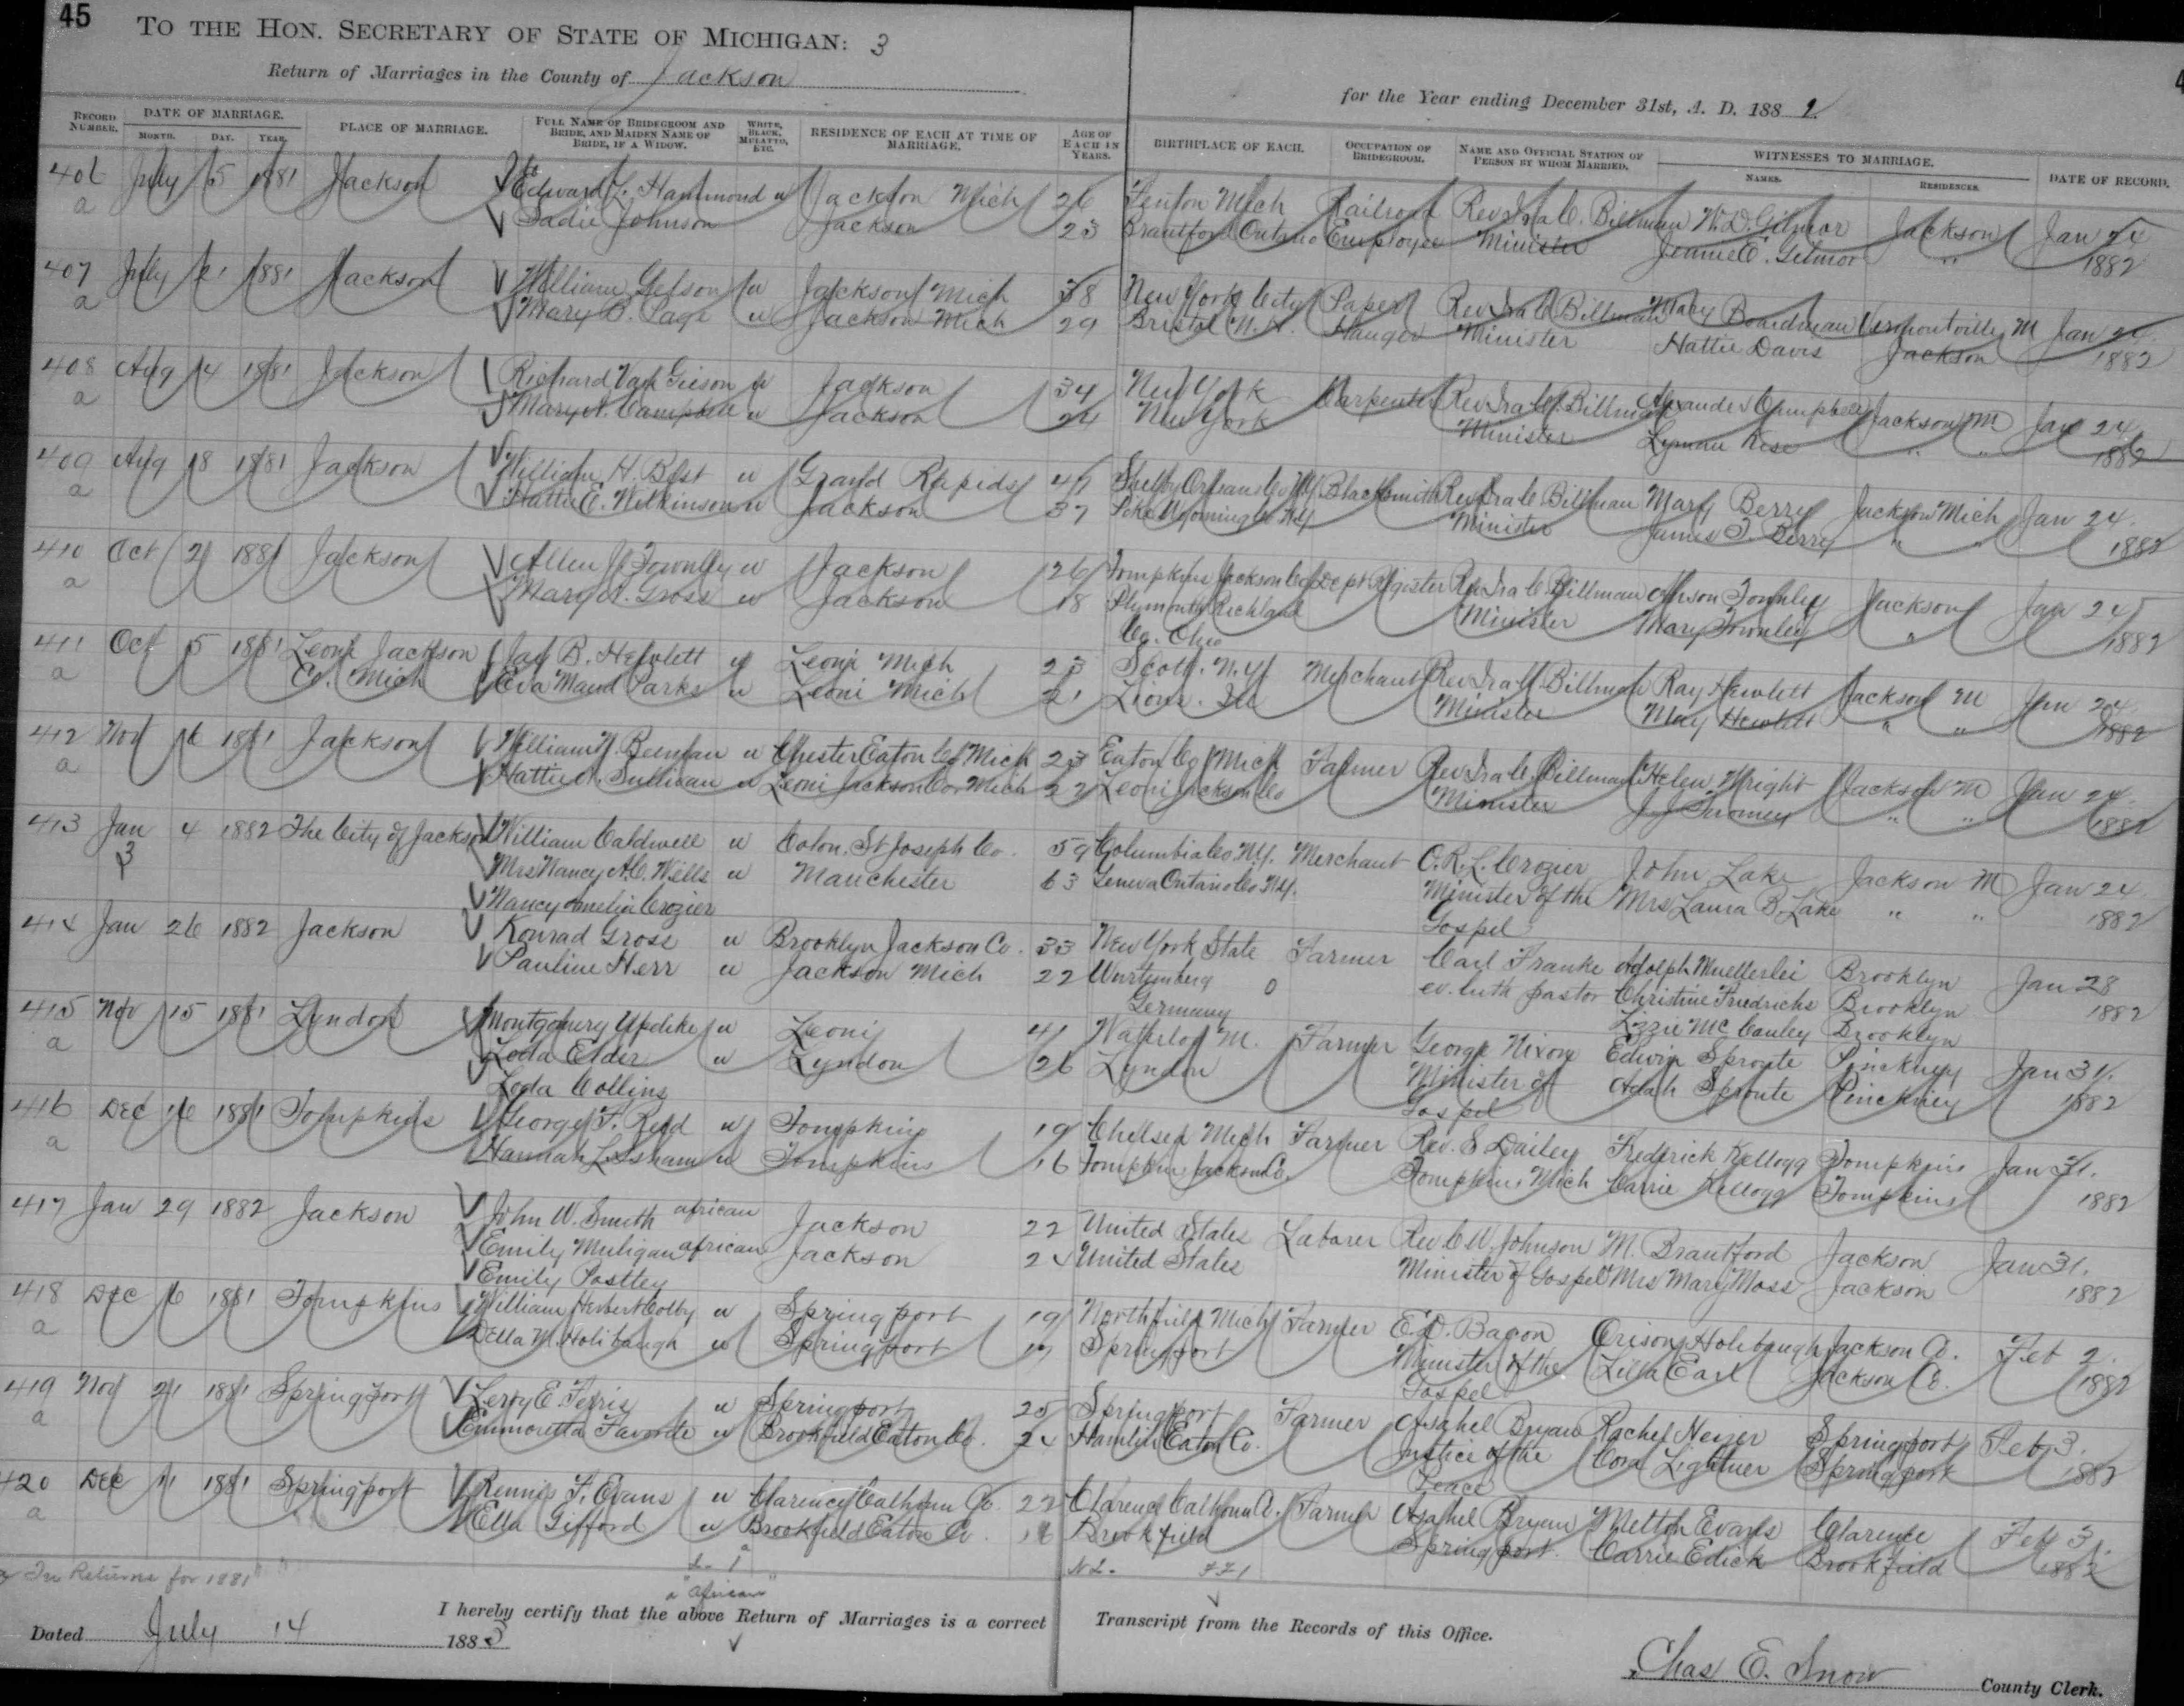 45
TO THE HON. SECRETARY OF STATE OF MICHIGAN: 3
Return of Marriages in the County of Jackson
for the Year ending December 31st, A. D. 1882
RECORD NUMBER. DATE OF MARRIAGE. MONTH. DAY. YEAR. PLACE OF MARRIAGE. FULL NAME OF BRIDEGROOM AND BRIDE, AND MAIDEN NAME OF BRIDE, IF A WIDOW. WHITE, BLACK, MULATTO, ETC. RESIDENCE OF EACH AT TIME OF MARRIAGE. AGE OF EACH IN YEARS. BIRTHPLACE OF EACH. OCCUPATION OF BRIDEGROOM. NAME AND OFFICIAL STATION OF PERSON BY WHOM MARRIED. WITNESSES TO MARRIAGE. NAMES. RESIDENCES. DATE OF RECORD.
406 July 5 1881 Jackson Edward L. Hammond w Jackson Mich 26 Fenton Mich Railroad Rev Ira C. Billman W. D. Gilmor Jackson Jan 24
a Sadie Johnson Jackson 23 Brantford Ontario Employee Minister Jennie E. Gilmor " 1882
407 July 21 1881 Jackson William Gelson w Jackson Mich 38 New York City Paper Rev Ira C Billman Mary Boardman Vermontville M Jan 24
a Mary B. Page w Jackson Mich 29 Bristol N.H. Hanger Minister Hattie Davis Jackson 1882
408 Aug 14 1881 Jackson Richard Van Gieson w Jackson 34 New York Carpenter Rev Ira C. Billman Alexander Campbell Jackson M Jan 24
a Mary A. Campbell w Jackson 24 New York Minister Lyman Kese " " 1882
409 Aug 18 1881 Jackson William H. Best w Grand Rapids 47 Shelby Orleans Co NY Blacksmith Rev Ira C Billman Mary Berry Jackson Mich Jan 24.
a Hattie E. Wilkinson w Jackson 37 Pike Wyoming Co NY Minister James T. Berry " " 1882
410 Oct 2 1881 Jackson Allen J Townley w Jackson 26 Tompkins Jackson Co Dept Register Rev Ira C. Billman Anson Townley Jackson Jan 24
a Mary A. Gross w Jackson 18 Plymouth Richland Minister Mary Townley " 1882
Co. Ohio
411 Oct 5 1881 Leoni Jackson Jay B. Hewlett w Leoni Mich 23 Scott. N.Y Merchant Rev Ira C. Billman Ray Hewlett Jackson M Jan 24
a Co. Mich Eva Maud Parks w Leoni Mich 21 Minister May Hewlett " " 1882
412 Nov 16 1881 Jackson William N. Beeman w Chester Eaton Co Mich 23 Eaton Co Mich Farmer Rev Ira C. Billman Helen Wright Jackson M Jan 24
a Hattie A. Sullivan w Leoni Jackson Co Mich 22 Leoni Jackson Co Minister J J Twomey " " 1882
413 Jan 4 1882 The City of Jackson William Caldwell w Colon. St Joseph Co. 59 Columbia Co. N.Y. Merchant O. R. L. Crozier John Lake Jackson M Jan 24
3 Mrs Nancy A. C. Wells w Manchester 63 Geneva Ontario Co. N.Y. Minister of the Mrs Laura B. Lake " " 1882
Nancy Amelia Crozier Gospel
414 Jan 26 1882 Jackson Konrad Gross w Brooklyn Jackson Co. 33 New York State Farmer Carl Franke Adolph Muellerlei Brooklyn Jan 28
Pauline Herr w Jackson Mich 22 Wurtemberg 0 ev. luth pastor Christine Friedrichs Brooklyn 1882
Germany Lizzie McCauley Brooklyn
415 Nov 15 1881 Lyndon Montgomery Updike w Leoni 41 Waterloo M. Farmer George Nixon Edwin Sproute Pinckney Jan 31.
a Loda Elder w Lyndon 26 Lyndon Minister of Adah Sproute Pinckney 1882
Loda Collins Gospel
416 Dec 16 1881 Tompkins George F. Reed w Tompkins 19 Chelsea Mich Farmer Rev. S Dailey Frederick Kellogg Tompkins Jan 31.
a Hannah L. Isham w Tompkins 16 Tompkins Jackson Co. Tompkins Mich Carrie Kellogg Tompkins 1882
417 Jan 29 1882 Jackson John W. Smith african Jackson 22 United States Laborer Rev. C W. Johnson M. Brantford Jackson Jan 31.
Emily Muligan african Jackson 24 United States Minister of Gospel Mrs Mary Moss Jackson 1882
Emily Postley
418 Dec 6 1881 Tompkins William Herbert Colby w Springport 19 Northfield Mich Farmer E. D. Bacon Orison Holibaugh Jackson Co. Feb 2.
a Della M. Holibaugh w Springport 17 Springport Minister of the Zilla Earl Jackson Co. 1882
Gospel
419 Nov 21 1881 Springport Leroy E Ferris w Springport 25 Springport Farmer Asahel Bryan Rachel Heiser Springport Feb 3.
a Emmoretta Favorite w Brookfield Eaton Co. 24 Hamlin Eaton Co. Justice of the Cora Lightner Springport 1882
Peace
420 Dec 11 1881 Springport Rennie F. Evans w Clarence Calhoun Co. 22 Clarence Calhoun Co. Farmer Asahel Bryan Melton Evans Clarence Feb 3.
a Ella Gifford w Brookfield Eaton Co. 16 Brookfield Springport. Carrie Edick Brookfield 1882
a In Returns for 1881
a "african"
I hereby certify that the above Return of Marriages is a correct Transcript from the Records of this Office.
Dated July 14 1883
Chas E. Snow County Clerk.